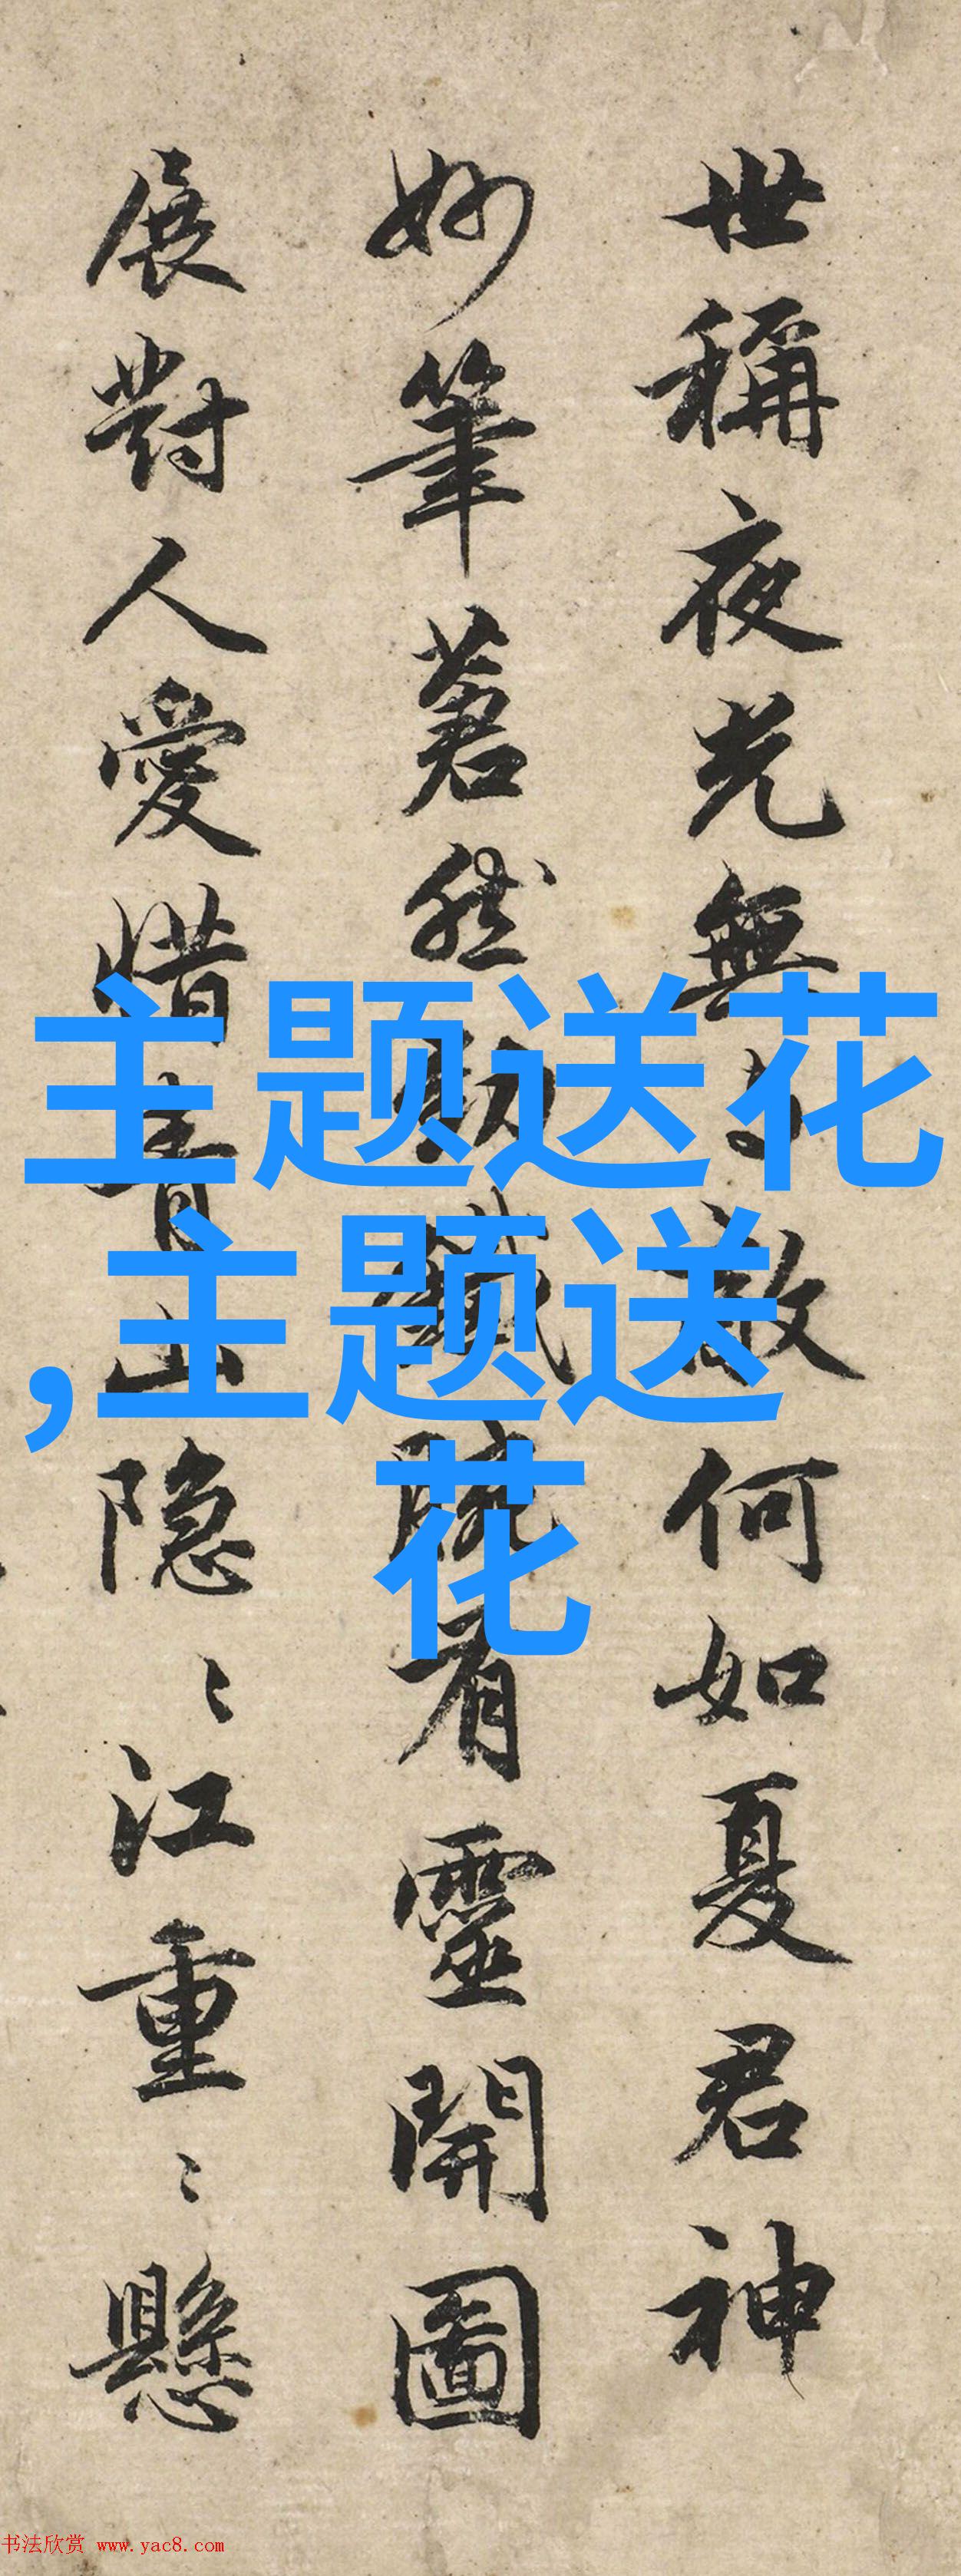 世稱夜光無敵何如夏君神
妙筆然有靈開圖
展對人愛惜青山隐〻江重〻懸
主题送花
,主题送
花
书法欣赏 www.yac8.com